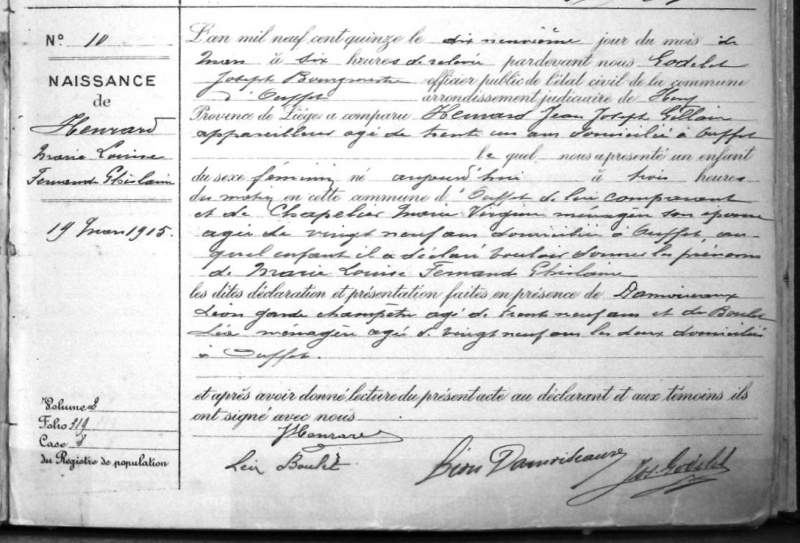 N° 10
NAISSANCE
de
Henrard
Marie Louise
Fernande Ghislaine
19 Mars 1915.
Volume 2
Folio 319
Case
du Registre de population
L'an mil neuf cent quinze le dix neuvième jour du mois de
Mars à six heures de relevée pardevant nous Godelet
Joseph Bourgmestre officier public de l'état civil de la commune
d'Ouffet arrondissement judiciaire de Huy
Province de Liège a comparu Henrard Jean Joseph Gillain
appareilleur agé de trente un ans domicilié à Ouffet
le quel nous a présenté un enfant
du sexe féminin né aujourd'hui à trois heures
du matin en cette commune d'Ouffet de lui comparant
et de Chapelier Marie ménagère son épouse
agée de vingt neuf ans domiciliée à Ouffet, au-
quel enfant il a déclaré vouloir donner les prénoms
de Marie Louise Fernande Ghislaine
les dites déclaration et présentation faites en présence de Damoiseaux
Léon garde champêtre agé de trente neuf ans et de Boulet
Léa ménagère agée de vingt neuf ans les deux domiciliés
à Ouffet.
et après avoir donné lecture du présent acte au déclarant et aux témoins ils
ont signé avec nous
JHenrard
Léa Boulet Léon Damoiseaux Jos. Godelet